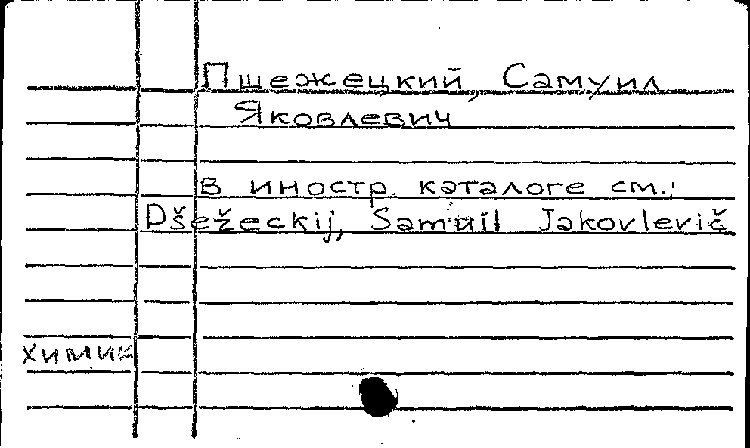 Пшежецкий, Самуил
Яковлевич
в иностр. каталоге см.:
Pšežeckij, Samuil Jakovlevič
химик